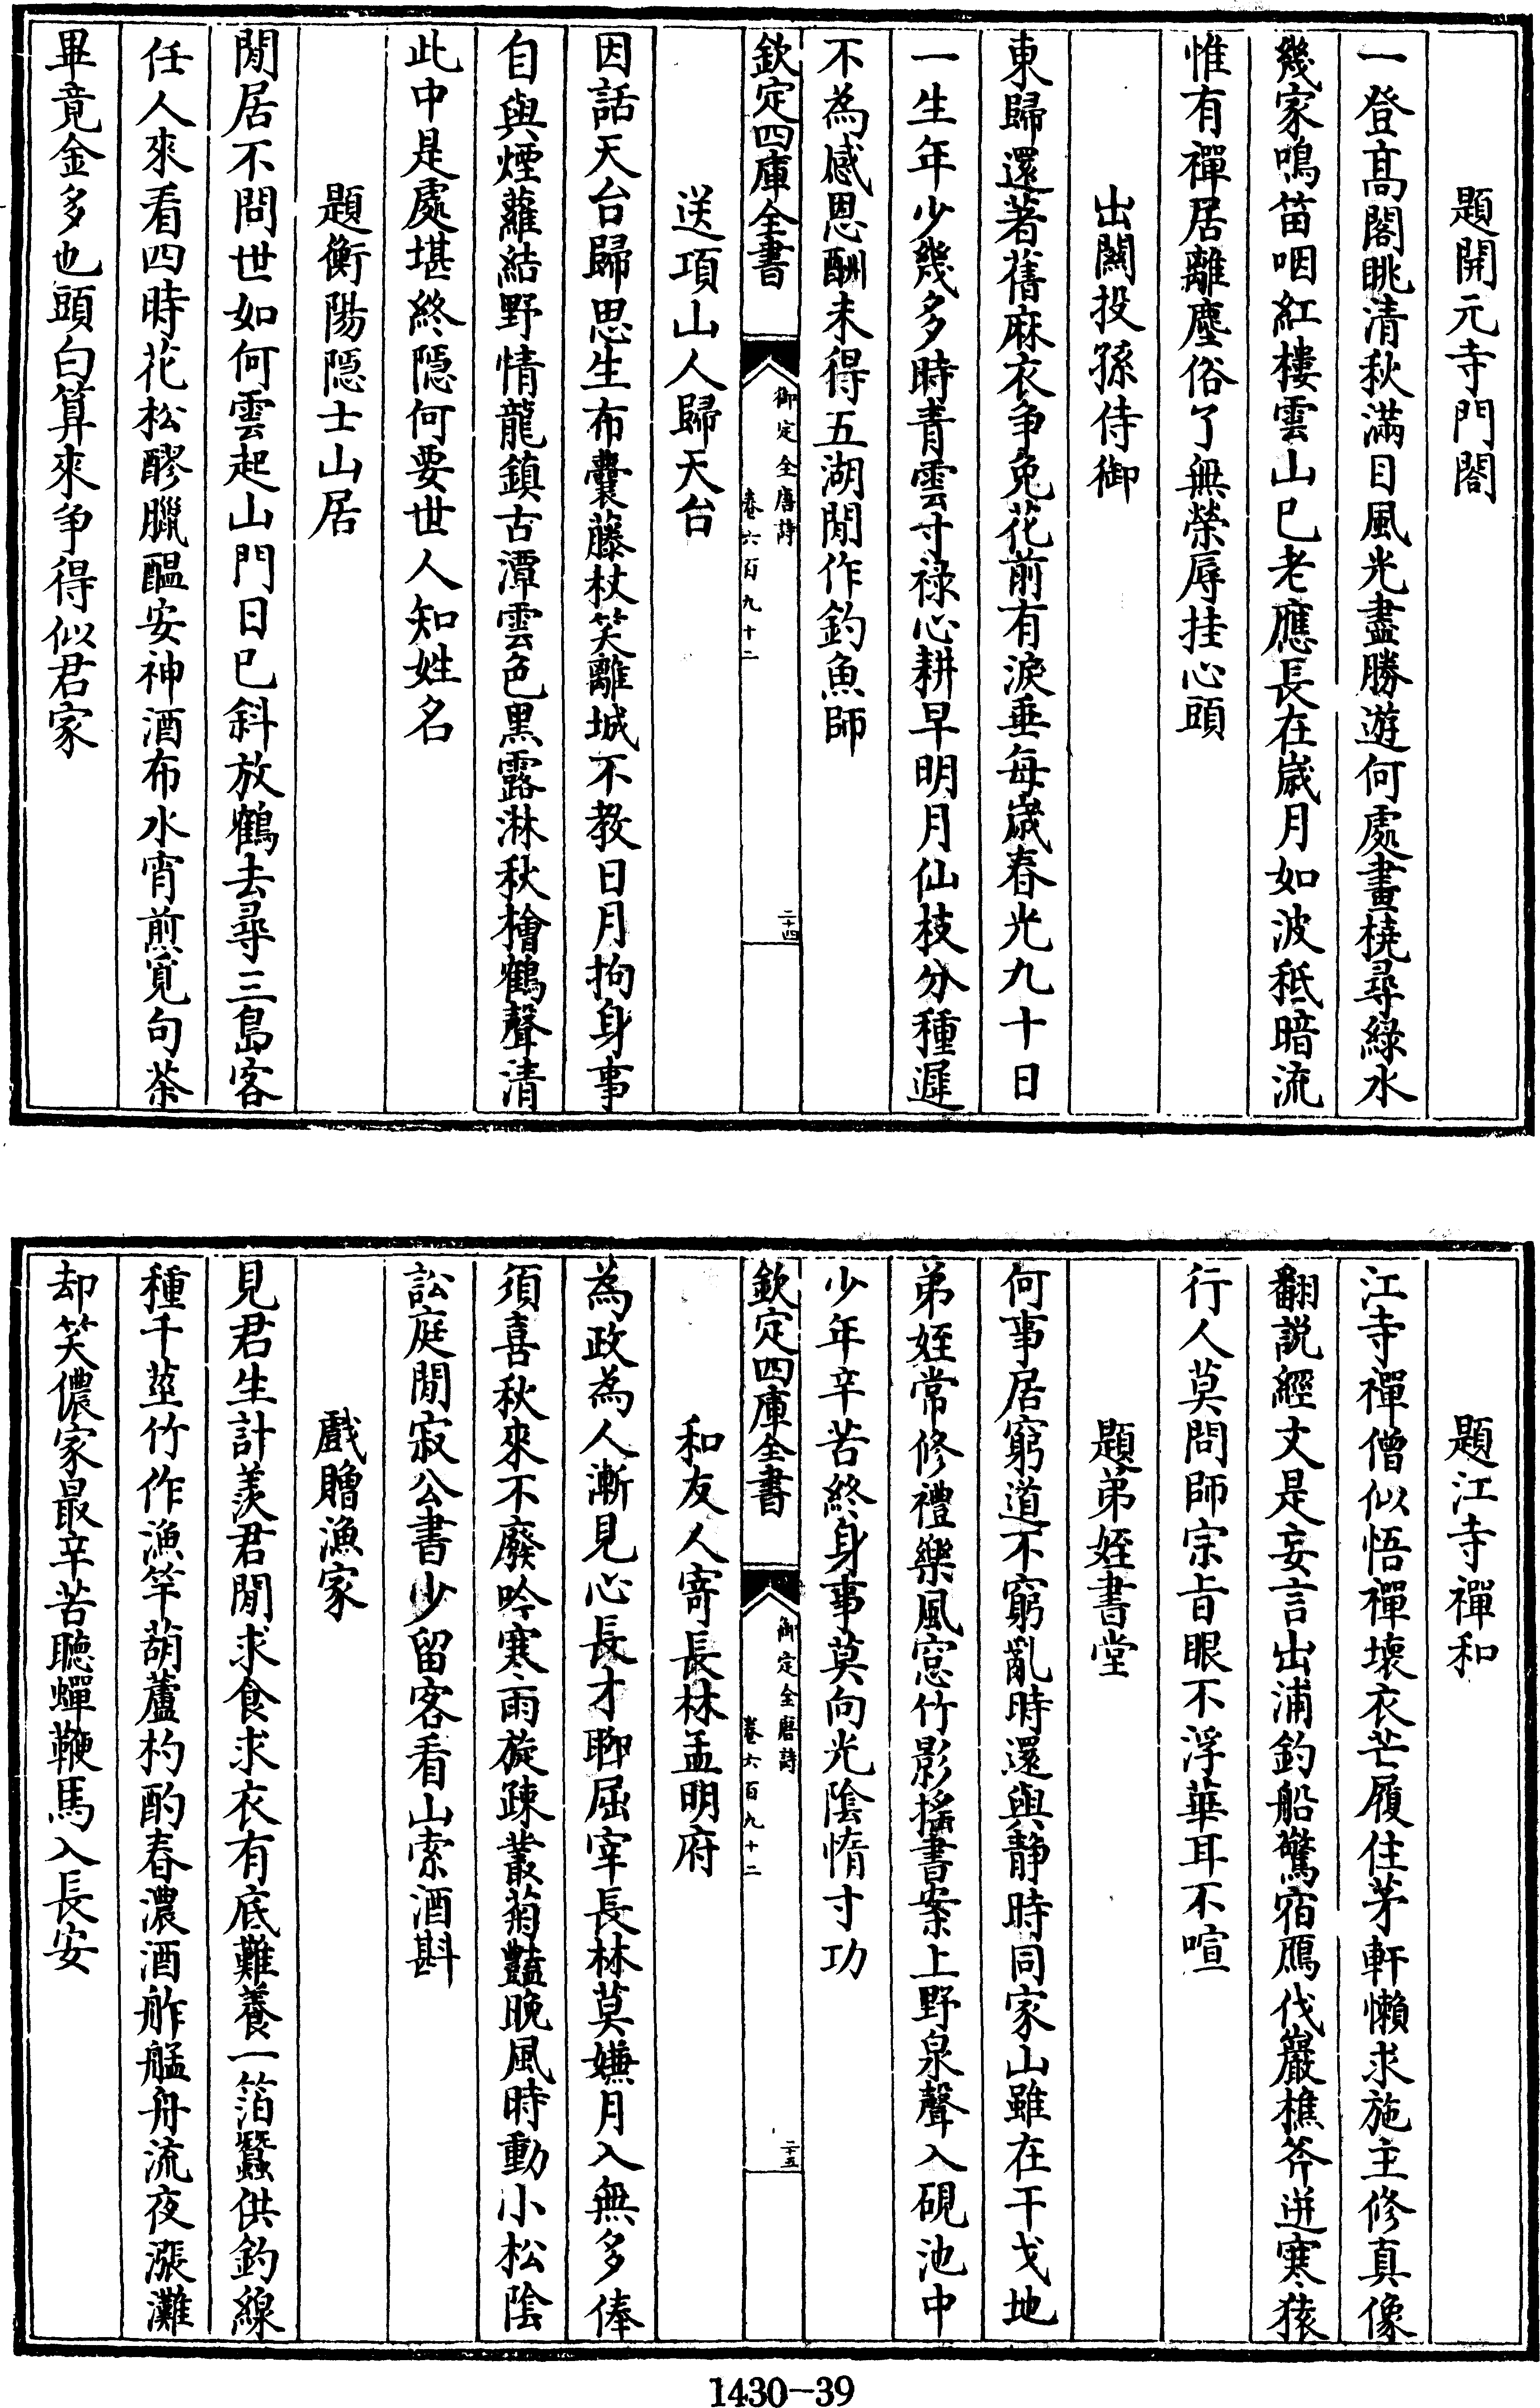 題開元寺門閣
一登高閣眺清秋滿目風光盡勝遊何處畫橈尋綠水
幾家鳴笛咽紅樓雲山已老應長在歲月如波秖暗流
惟有禪居離塵俗了無榮辱挂心頭
出關投孫侍御
東歸還著舊麻衣争免花前有淚垂每歲春光九十日
一生年少幾多時青雲寸祿心耕早明月仙枝分種遲
不為感恩酬未得五湖閒作釣魚師
欽定四庫全書
御定全唐詩
卷六百九十二
二十四
送項山人歸天台
因話天台歸思生布囊藤杖笑離城不教日月拘身事
自與煙蘿結野情龍鎮古潭雲色黑露淋秋檜鶴聲清
此中是處堪終隱何要世人知姓名
題衡陽隱士山居
閒居不問世如何雲起山門日已斜放鶴去尋三島客
任人來看四時花松醪臘醞安神酒布水宵煎覓句茶
畢竟金多也頭白算來争得似君家
題江寺禪和
江寺禪僧似悟禪壞衣芒履住茅軒懶求施主修真像
翻說經文是妄言出浦釣船驚宿鴈伐巖樵斧迸寒猿
行人莫問師宗旨眼不浮華耳不喧
題弟姪書堂
何事居窮道不窮亂時還與静時同家山雖在干戈地
弟姪常修禮樂風窓竹影搖書案上野泉聲入硯池中
少年辛苦終身事莫向光陰惰寸功
欽定四庫全書
御定全唐詩
卷六百九十二
二十五
和友人寄長林孟明府
為政為人漸見心長才聊屈宰長林莫嫌月入無多俸
須喜秋來不廢吟寒雨旋疎叢菊豔晚風時動小松陰
訟庭閒寂公書少留客看山索酒斟
戲贈漁家
見君生計羨君閒求食求衣有底難養一箔蠶供釣線
種千莖竹作漁竿葫蘆杓酌春濃酒舴艋舟流夜漲灘
却笑儂家最辛苦聽蟬鞭馬入長安
1430—39